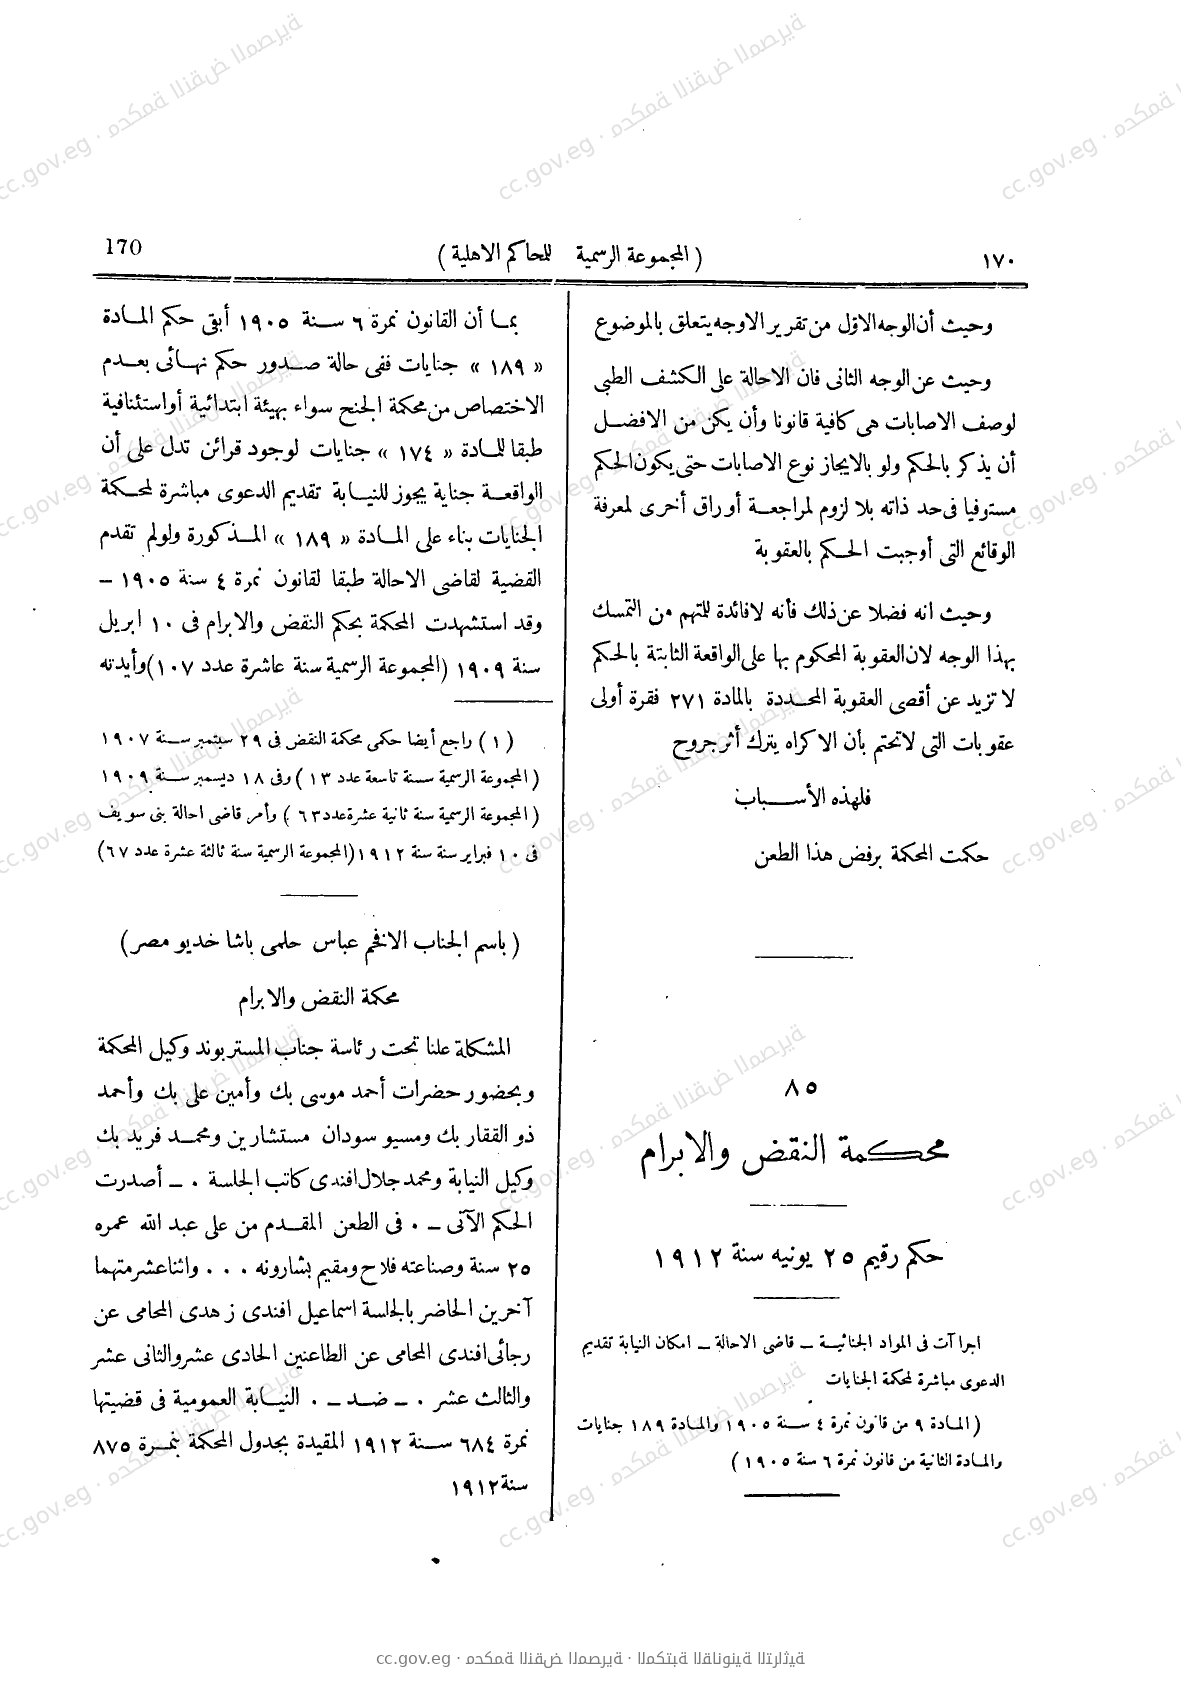 ١٧٠
( المجموعة الرسمية للمحاكم الاهلية )
170
وحيث أن الوجه الاوّل من تقرير الاوجه يتعلق بالموضوع
وحيث عن الوجه الثانى فان الاحالة على الكشف الطبى
لوصف الاصابات هى كافية قانونا وأن يكن من الافضل
أن يذكر بالحكم ولو بالايجاز نوع الاصابات حتى يكون الحكم
مستوفيا فى حد ذاته بلا لزوم لمراجعة أوراق أخرى لمعرفة
الوقائع التى أوجبت الحكم بالعقوبة
وحيث انه فضلا عن ذلك فأنه لافائدة للمتهم من التمسك
بهذا الوجه لان العقوبة المحكوم بها على الواقعة الثابتة بالحكم
لا تزيد عن أقصى العقوبة المحددة بالمادة ٢٧١ فقرة أولى
عقوبات التى لا تحتم بأن الاكراه يترك أثر جروح
فلهذه الأسباب
حكمت المحكمة برفض هذا الطعن
٨٥
محكمة النقض والابرام
حكم رقيم ٢٥ يونيه سنة ١٩١٢
اجراآت فى المواد الجنائية – قاضى الاحالة – امكان النيابة تقديم
الدعوى مباشرة لمحكمة الجنايات
( المادة ٩ من قانون نمرة ٤ سنة ١٩٠٥ والمادة ١٨٩ جنايات
والمادة الثانية من قانون نمرة ٦ سنة ١٩٠٥ )
بما أن القانون نمرة ٦ سنة ١٩٠٥ أبقى حكم المادة
« ١٨٩ » جنايات ففى حالة صدور حكم نهائى بعدم
الاختصاص من محكمة الجنح سواء بهيئة ابتدائية أو استئنافية
طبقا للمادة « ١٧٤ » جنايات لوجود قرائن تدل على أن
الواقعة جناية يجوز للنيابة تقديم الدعوى مباشرة لمحكمة
الجنايات بناء على المادة « ١٨٩ » المذكورة ولو لم تقدم
القضية لقاضى الاحالة طبقا لقانون نمرة ٤ سنة ١٩٠٥ –
وقد استشهدت المحكمة بحكم النقض والابرام فى ١٠ ابريل
سنة ١٩٠٩ (المجموعة الرسمية سنة عاشرة عدد ١٠٧) وأيدته
( ١ ) راجع أيضا حكمى محكمة النقض فى ٢٩ سبتمبر سنة ١٩٠٧
( المجموعة الرسمية سنة تاسعة عدد ١٣ ) وفى ١٨ ديسمبر سنة ١٩٠٩
( المجموعة الرسمية سنة ثانية عشرة عدد ٦٣ ) وأمر قاضى احالة بنى سويف
فى ١٠ فبراير سنة سنة ١٩١٢ (المجموعة الرسمية سنة ثالثة عشرة عدد ٦٧)
( باسم الجناب الافخم عباس حلمى باشا خديو مصر )
محكمة النقض والابرام
المشكلة علنا تحت رئاسة جناب المستر بوند وكيل المحكمة
وبحضور حضرات أحمد موسى بك وأمين على بك وأحمد
ذو الفقار بك ومسيو سودان مستشارين ومحمد فريد بك
وكيل النيابة ومحمد جلال افندى كاتب الجلسة . – أصدرت
الحكم الآتى – . فى الطعن المقدم من على عبد الله عمره
٢٥ سنة وصناعته فلاح ومقيم بشارونه . . . واثنا عشر متهما
آخرين الحاضر بالجلسة اسماعيل افندى زهدى المحامى عن
رجائى افندى المحامى عن الطاعنين الحادى عشر والثانى عشر
والثالث عشر . – ضد – . النيابة العمومية فى قضيتها
نمرة ٦٨٤ سنة ١٩١٢ المقيدة بجدول المحكمة بنمرة ٨٧٥
سنة ١٩١٢
cc.gov.eg · محكمة النقض المصرية · المكتبة القانونية التراثية